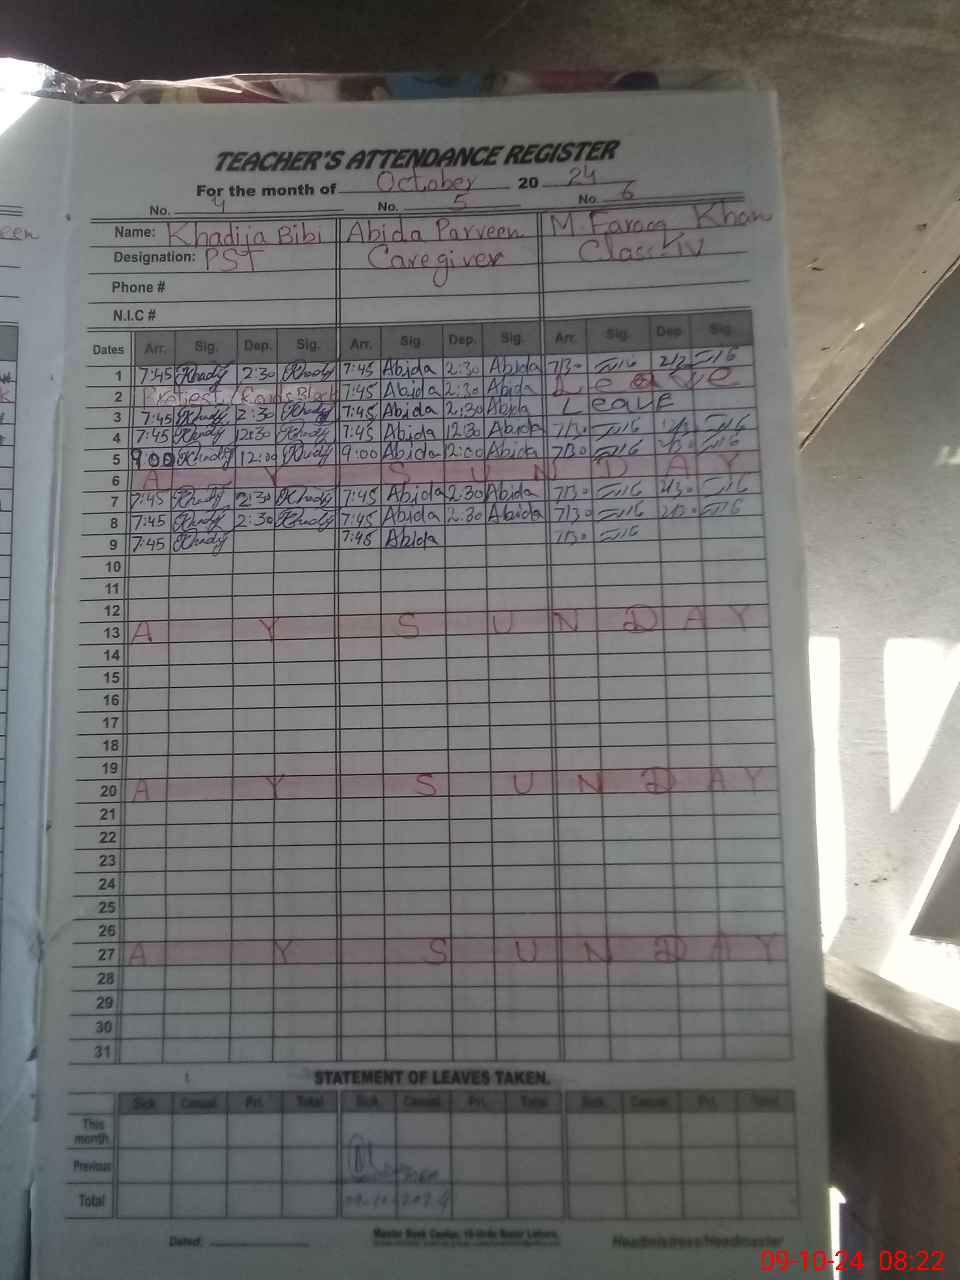 een
TEACHER'S ATTENDANCE REGISTER
For the month of October 20 24
No. 4 No. 5 No. 6
Name: Khadija Bibi Abida Parveen M. Farooq Khan
Designation: PST Caregiver Class-IV
Phone #
N.I.C #
Dates Arr. Sig. Dep. Sig. Arr. Sig. Dep. Sig. Arr. Sig. Dep. Sig.
1 7:45 Khady 2:30 Khady 7:45 Abida 2:30 Abida 7/30 2/30
2 Protest / Roads Block 7:45 Abida 2:30 Abida Leave
3 7:45 Khady 2:30 Khady 7:45 Abida 2:30 Abida Leave
4 7:45 Khady 12:30 Khady 7:45 Abida 12:30 Abida 7/30 12/30
5 9:00 Khady 12:00 Khady 9:00 Abida 12:00 Abida 7/30
6 A Y S U N D A Y
7 7:45 Khady 2:30 Khady 7:45 Abida 2:30 Abida 7/30 2/30
8 7:45 Khady 2:30 Khady 7:45 Abida 2:30 Abida 7/30 2/30
9 7:45 Khady 7:45 Abida 7/30
10
11
12
13 A Y S U N D A Y
14
15
16
17
18
19
20 A Y S U N D A Y
21
22
23
24
25
26
27 A Y S U N D A Y
28
29
30
31
STATEMENT OF LEAVES TAKEN.
Sick Casual Pri. Total Sick. Casual Pri. Total Sick. Casual Pri. Total
This month
Previous
Total 09-10-2024
Dated:
Headmistress/Headmaster
09-10-24 08:22